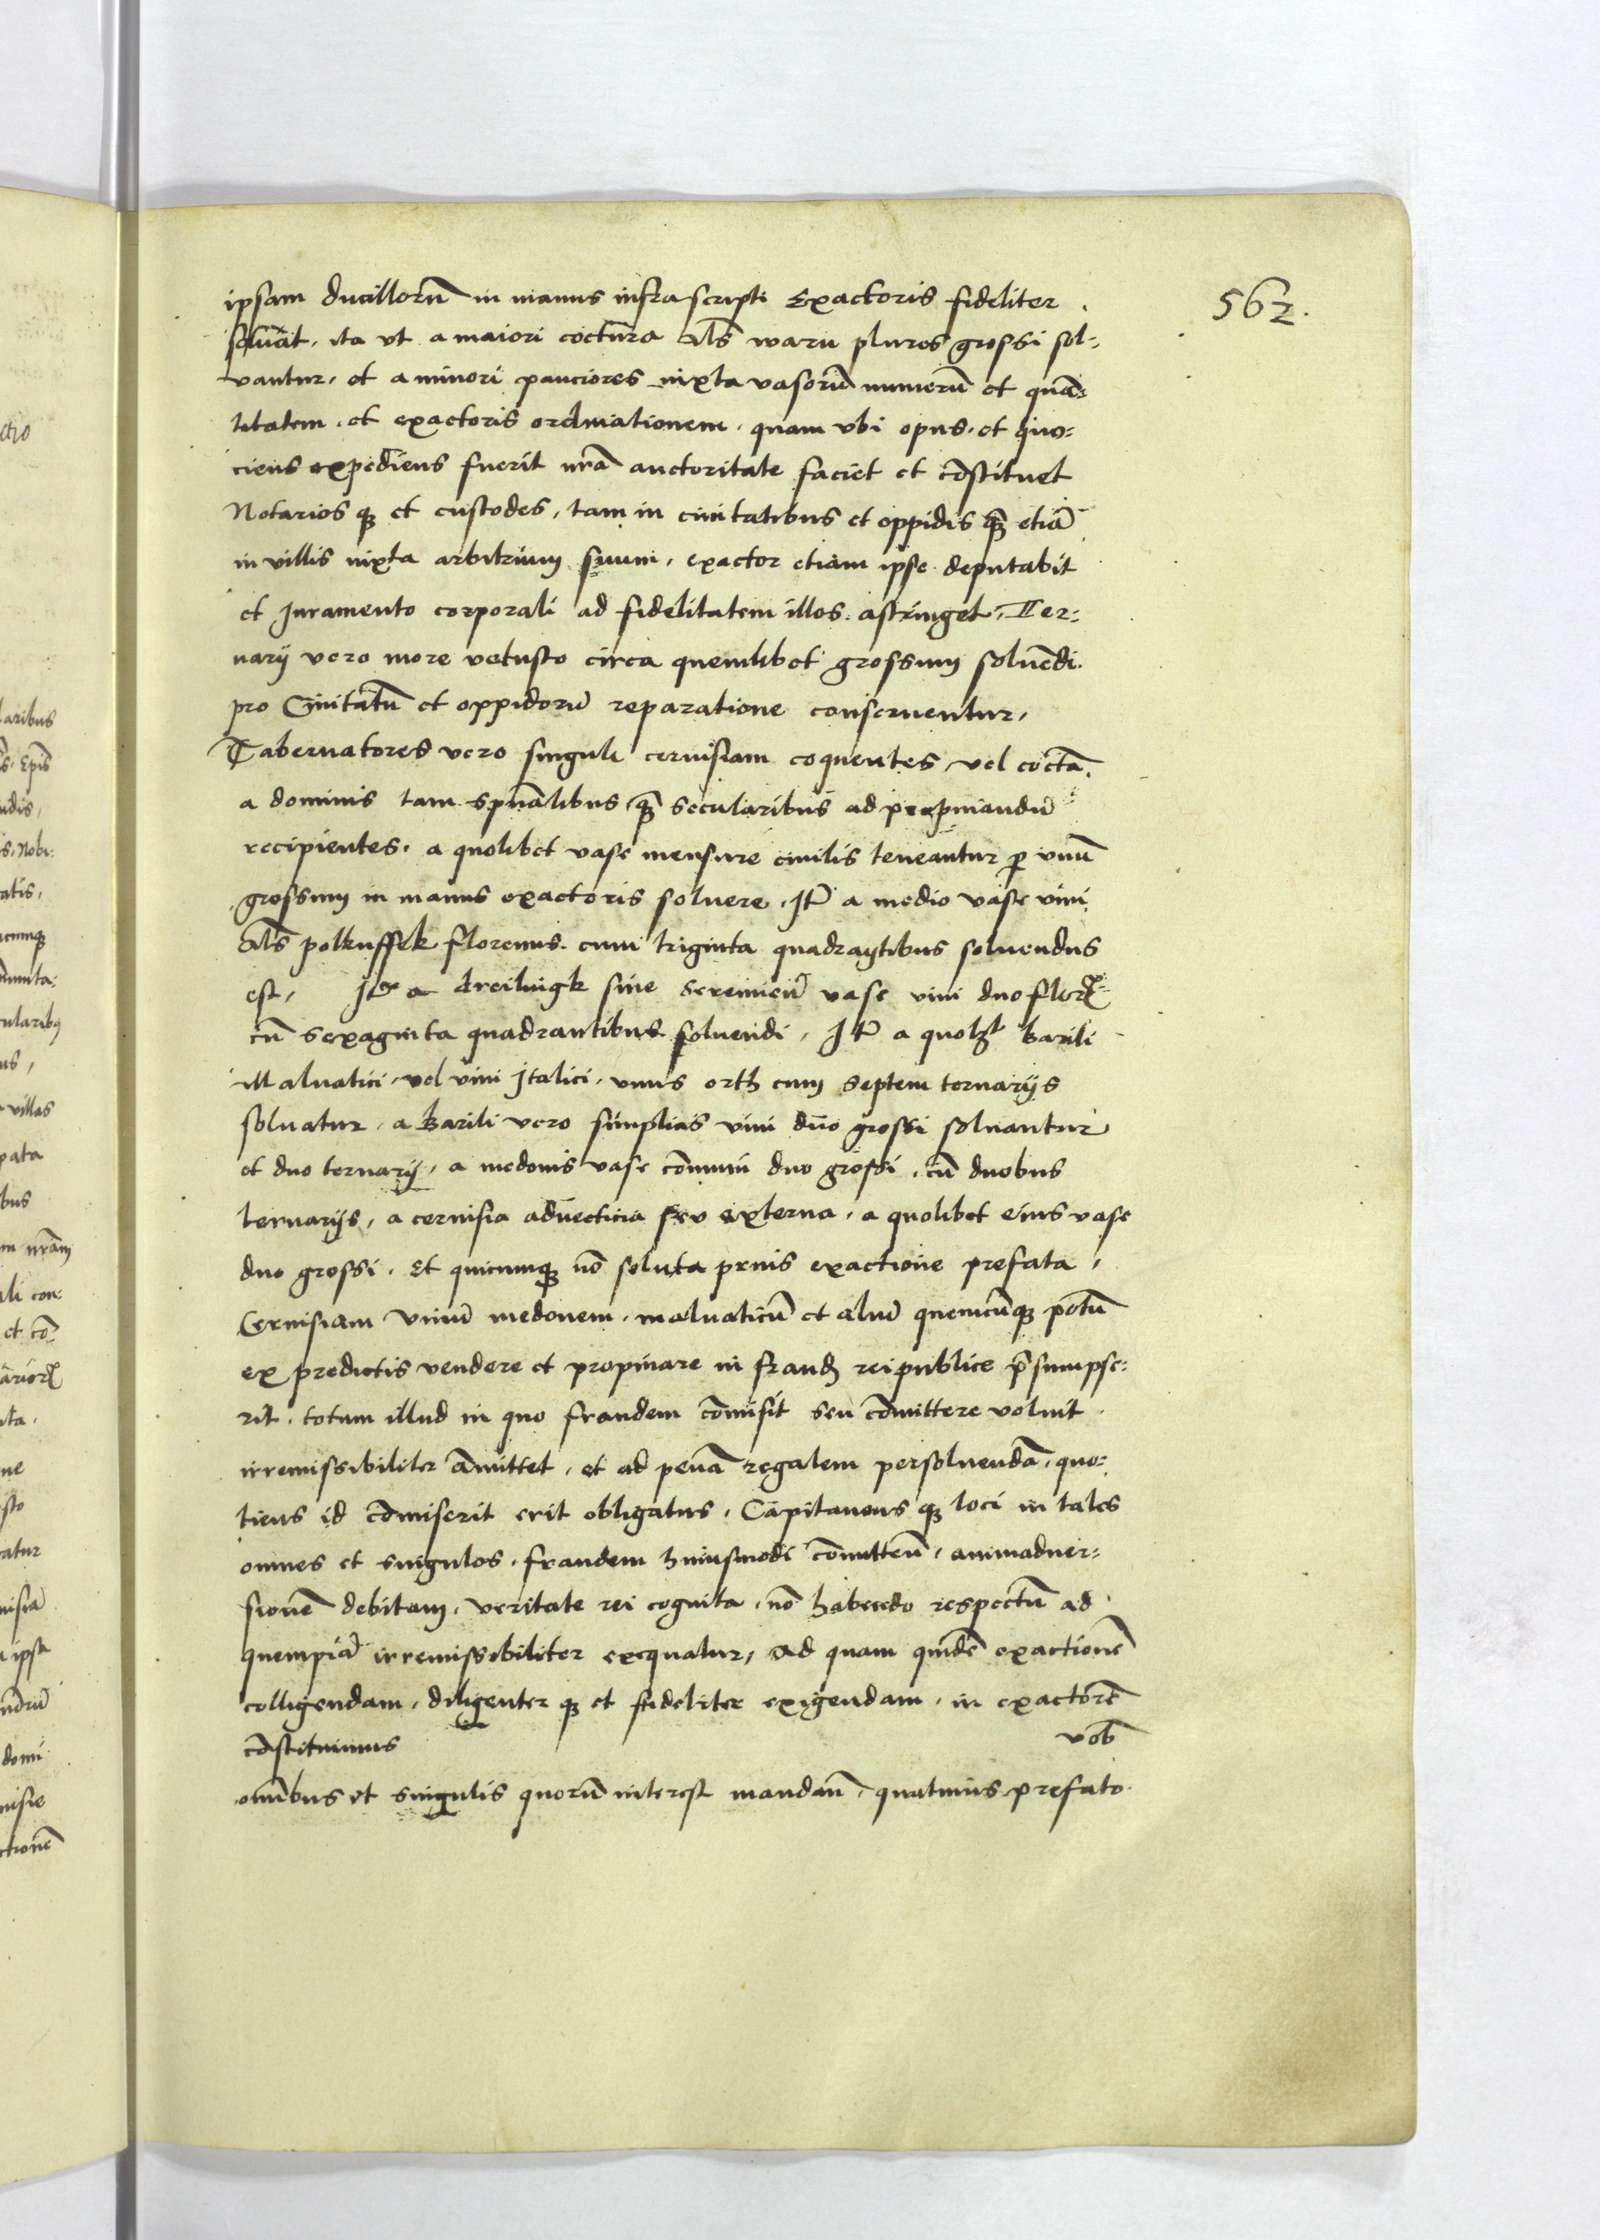 562.
ipsam ducillorũ in manus infrascripti Exactoris fideliter
soluãt, ita ut a maiori coctura als̃ waru plures grossi sol-
vantur, et a minori pauciores iuxta vasorũ numerũ et quã-
titatem, et exactoris ordinationem, quam ubi opus, et quo-
ciens expediens fuerit nrã auctoritate faciet et cõstituet
Notarios qȝ et custodes, tam in civitatibus et oppidis qȝ etiã
in villis iuxta arbitrium suum, exactor etiam ipse deputabit
et Juramento corporali ad fidelitatem illos astringet, Ter-
narij vero more vetusto circa quemlibet grossum soluẽdi
pro Civitatũ et oppidorũ reparatione conserventur,
Tabernatores vero singuli cervisiam coquentes, vel coctã
a dominis tam spũalibus qȝ secularibus ad propinandũ
recipientes, a quolibet vase mensure civilis teneantur p unũ
grossum in manus exactoris soluere, Itẽ a medio vase vini
als̃ polkuffek florenus cum triginta quadrantibus soluendus
est, Itẽ a dreilingk sive seremieñ vase vini duo floꝝ
cũ sexaginta quadrantibus soluendi, Itẽ a quolȝ barili
Malvatici, vel vini Italici, unus orth cum septem ternarijs
soluatur, a barili vero simplicis vini duo grossi soluantur
et duo ternarij, a medonis vase cõmuni duo grossi, cũ duobus
ternarijs, a cervisia advecticia seu externa, a quolibet eius vase
duo grossi, Et quicumqȝ nõ soluta prius exactione prefata,
Cervisiam Vinũ medonem, malvaticũ et aliũ quemcũqȝ potũ
ex predictis vendere et propinare in fraudȝ reipublice p̃sumpse-
rit, totum illud in quo fraudem cõmisit seu cõmittere voluit
irremissibiliter amittet, et ad penã regalem persoluendã, quo-
tiens id cõmiserit erit obligatus, Capitaneus qȝ loci in tales
omnes et singulos, fraudem huiusmodi cõmitteñ, animadver-
sionẽ debitam, veritate rei cognita, nõ habendo respectũ ad
quempiã irremissibiliter exequatur, Ad quam quidẽ exactionẽ
colligendam, diligenter qȝ et fideliter exigendam, in exactorẽ
cõstituimus vob̃
omĩbus et singulis quorũ interest mandam̃, quatinus prefato